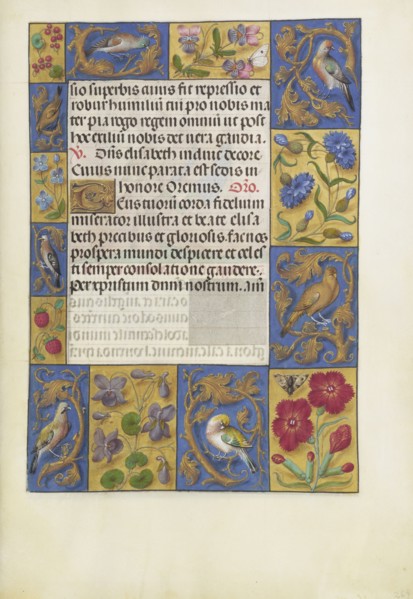 sio superbis cuius fit repressio et
robur humiliũ cui pro nobis ma
ter pia rogo regem omniũ ut post
hoc exiliũ nobis det vera gaudia.
V. Dñs elisabeth induit decore.
Cuius nunc parata est sedis in
honore Oremus. Oro.
Deus tuorũ corda fidelium
miserator illustra et beate elisa
beth precibus et gloriosis. fac nos
prospera mundi despicere et celes
ti semper consolatione gaudere.
Per xpristum dnm nostrum. am̃